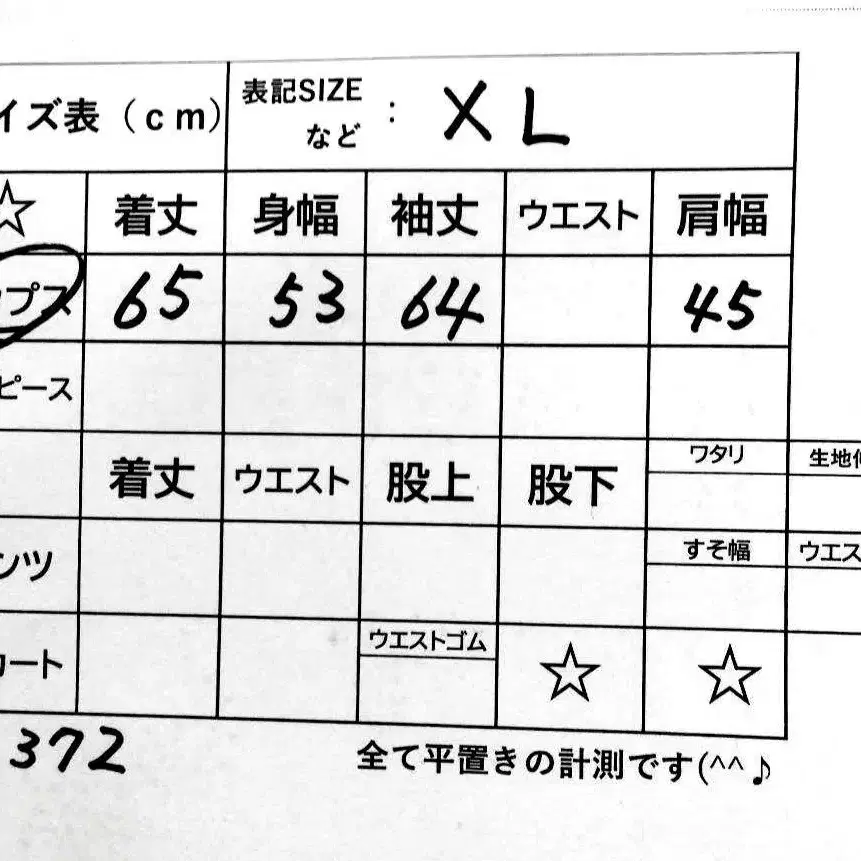 イズ表（ｃｍ） 表記SIZE など : XL
☆ 着丈 身幅 袖丈 ウエスト 肩幅
ップス 65 53 64 45
ピース
着丈 ウエスト 股上 股下 ワタリ 生地伸
ンツ すそ幅 ウエス
カート ウエストゴム ☆ ☆
372 全て平置きの計測です(^^♪